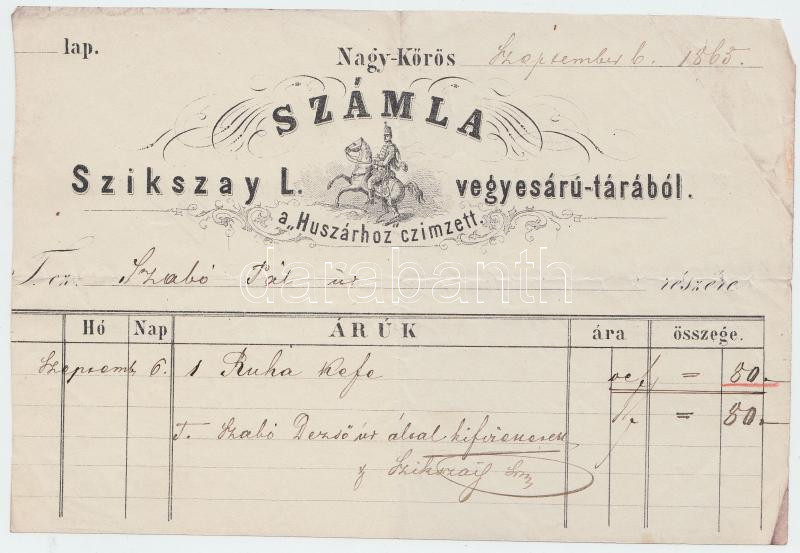 lap.
Nagy-Kőrös Szeptember 6. 1865.
SZÁMLA
Szikszay L. vegyesárú-tárából.
a „Huszárhoz" czimzett.
T. cz. Szabó Pál úr részére
darabanth
Hó Nap ÁRÚK ára összege.
Szeptemb. 6. 1 Ruha kefe = 80.
= 80.
T. Szabó Dezső úr által
Szikszay